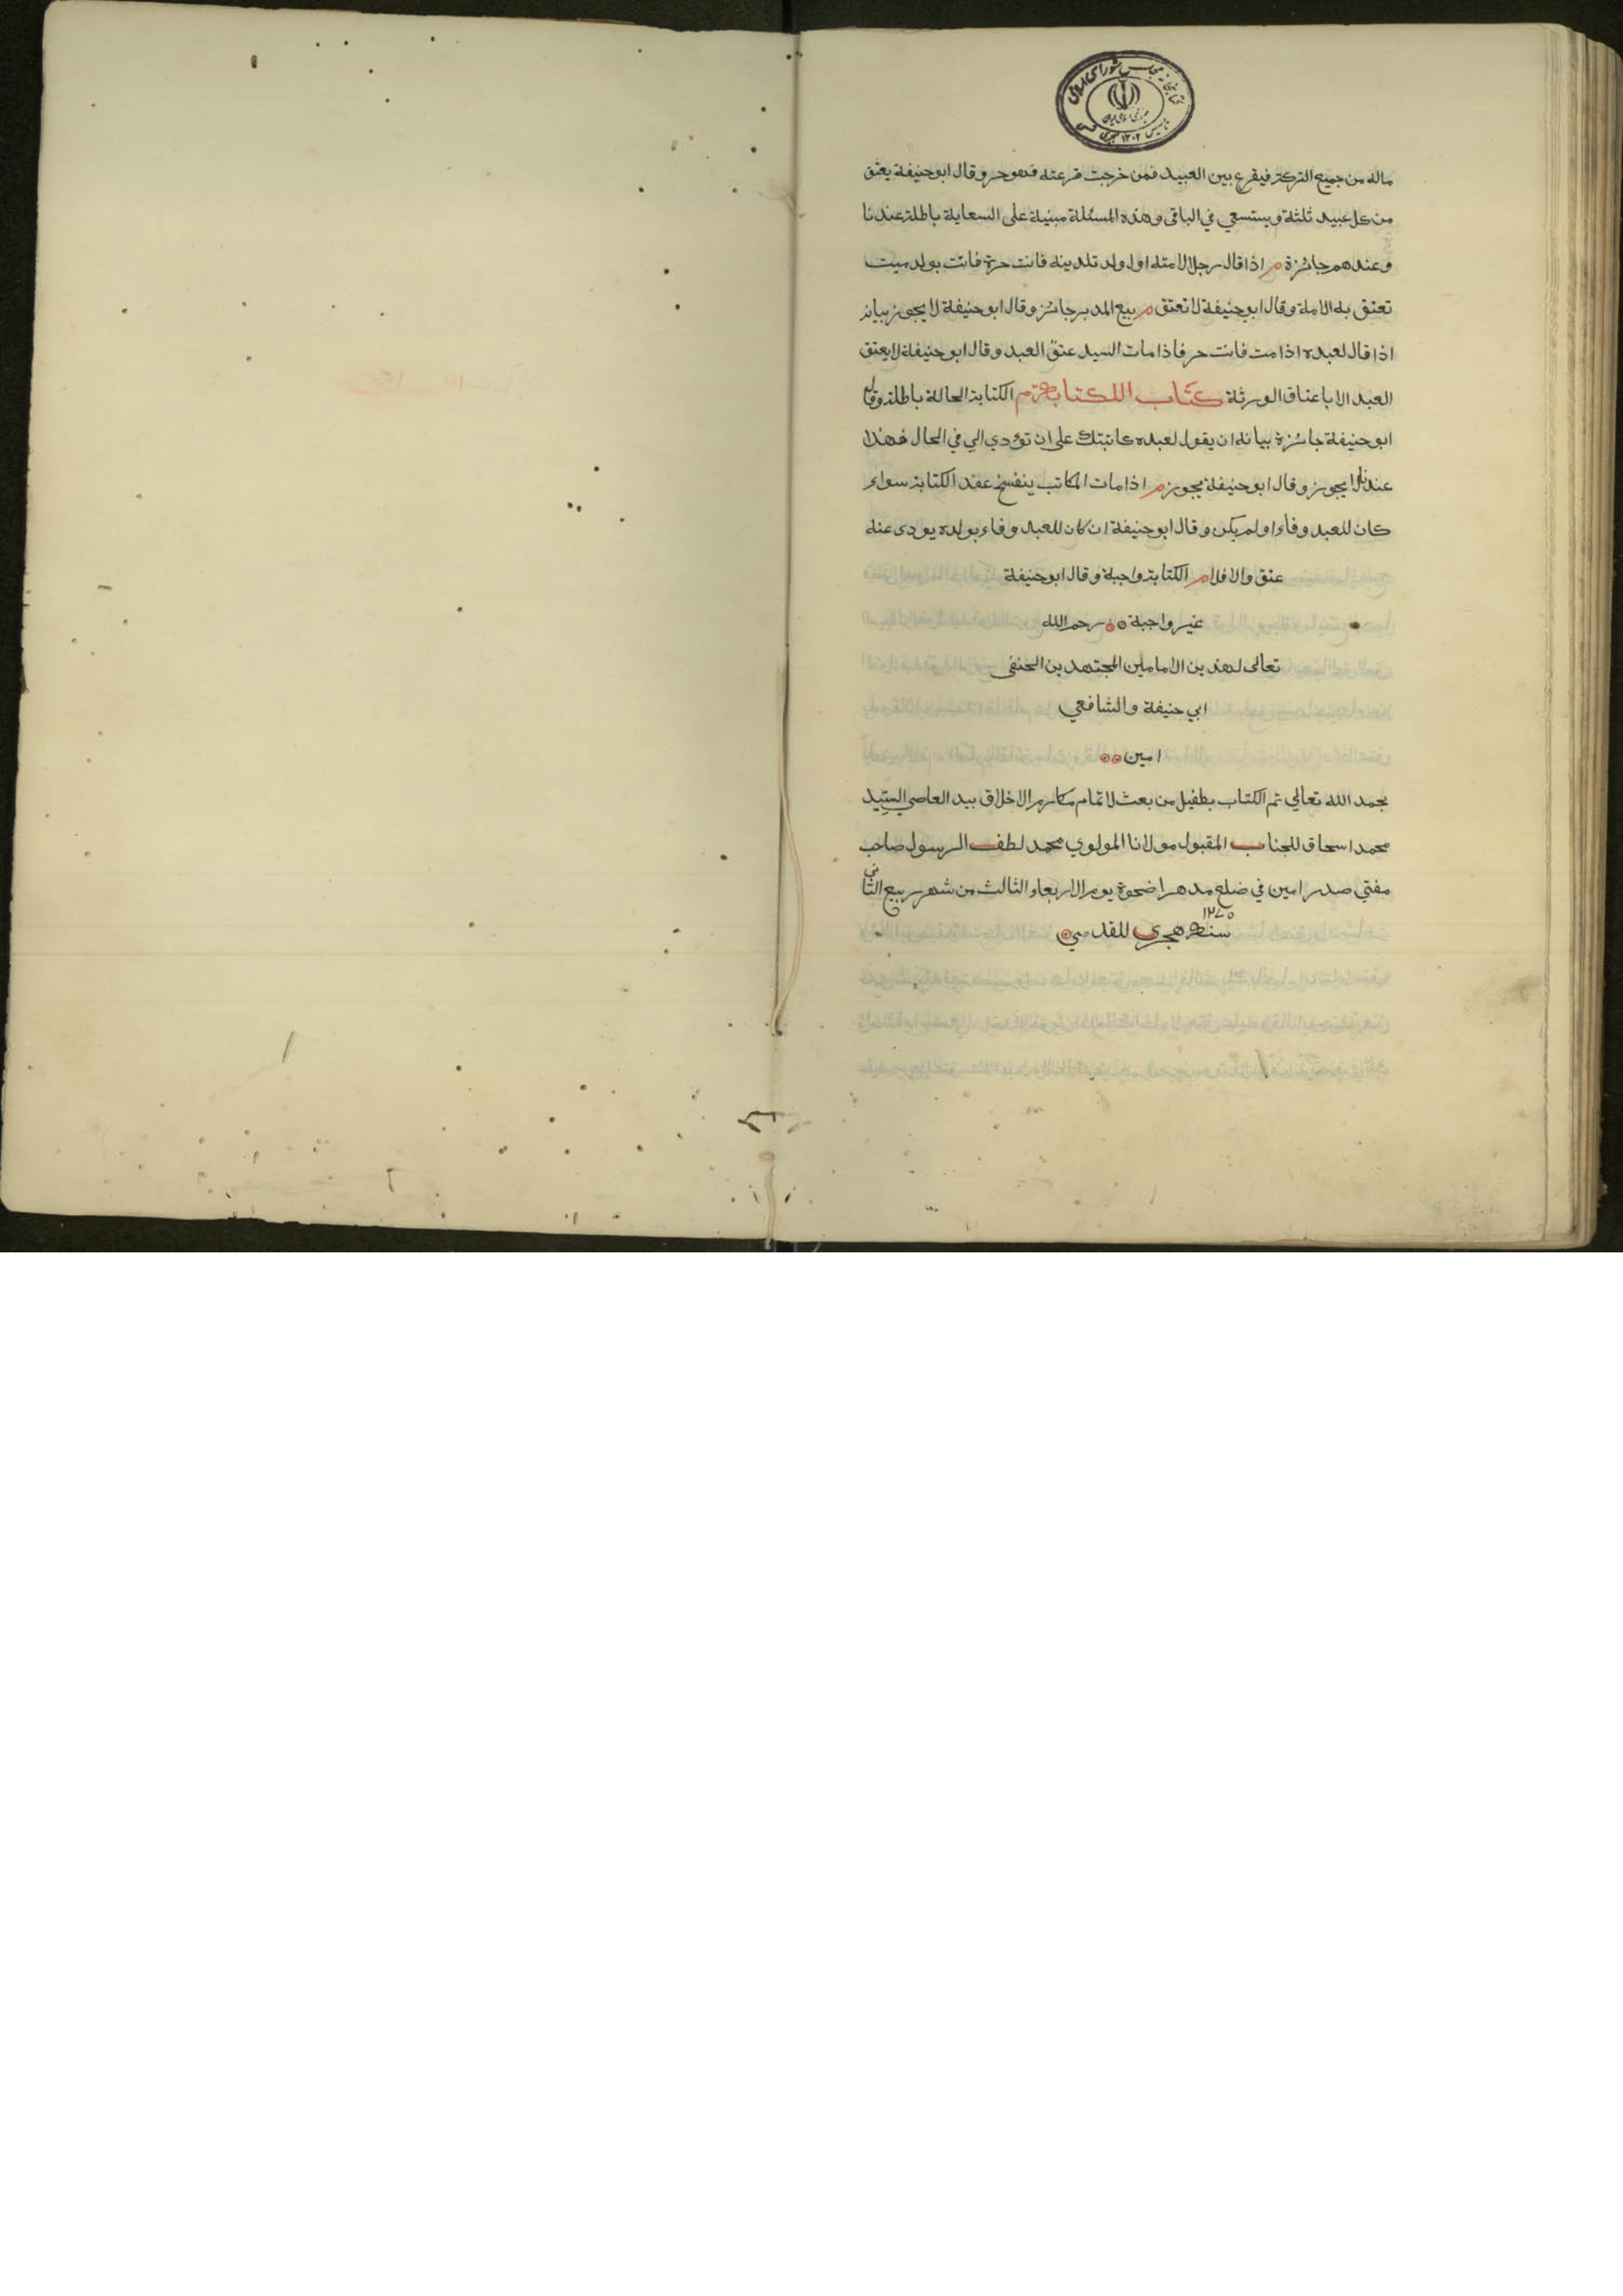 كتابخانه مجلس شورای اسلامی
جمهوری اسلامی ایران
تاسیس ۱۳۰۲ هجری شمسی
ماله من جميع التركة فيقرع بين العبيد فمن خرجت قرعته فهو حر وقال ابوحنيفة يعتق
من كل عبيد ثلثة ويستسعي في الباقي وهذه المسئلة مبنية على السعاية باطلة عندنا
وعندهم جائزة م اذا قال رجل لامته اول ولد تلدينه فانت حرة فاتت بولد ميت
تعتق به الامة وقال ابوحنيفة لا تعتق م بيع المدبر جائز وقال ابوحنيفة لا يجوز بيانه
اذا قال لعبده اذا مت فانت حر فاذا مات السيد عتق العبد وقال ابوحنيفة لا يعتق
العبد الا باعتاق الورثة كتاب الكتابة م الكتابة الحالة باطلة وقال
ابوحنيفة جائزة بيانه ان يقول لعبده كاتبتك على ان تؤدي الي في الحال فهذا
عندنا لا يجوز وقال ابوحنيفة يجوز م اذا مات المكاتب ينفسخ عقد الكتابة سواء
كان للعبد وفاء او لم يكن وقال ابوحنيفة ان كان للعبد وفاء بولده يودى عنه
عتق والا فلا م الكتابة واجبة وقال ابوحنيفة
غير واجبة ٥٥ رحم الله
تعالى لهذين الامامين المجتهدين الحنفى
ابي حنيفة والشافعي
امين ٥٥
بحمد الله تعالي تم الكتاب بطفيل من بعث لاتمام مكارم الاخلاق بيد العاصي السيد
محمد اسحاق للجناب المقبول مولانا المولوي محمد لطف الرسول صاحب
مفتي صدر امين في ضلع مدهرا ضحوة يوم الاربعاء الثالث من شهر ربيع الثاني
سنة ١٢٧٥ هجري للقدسي ٥